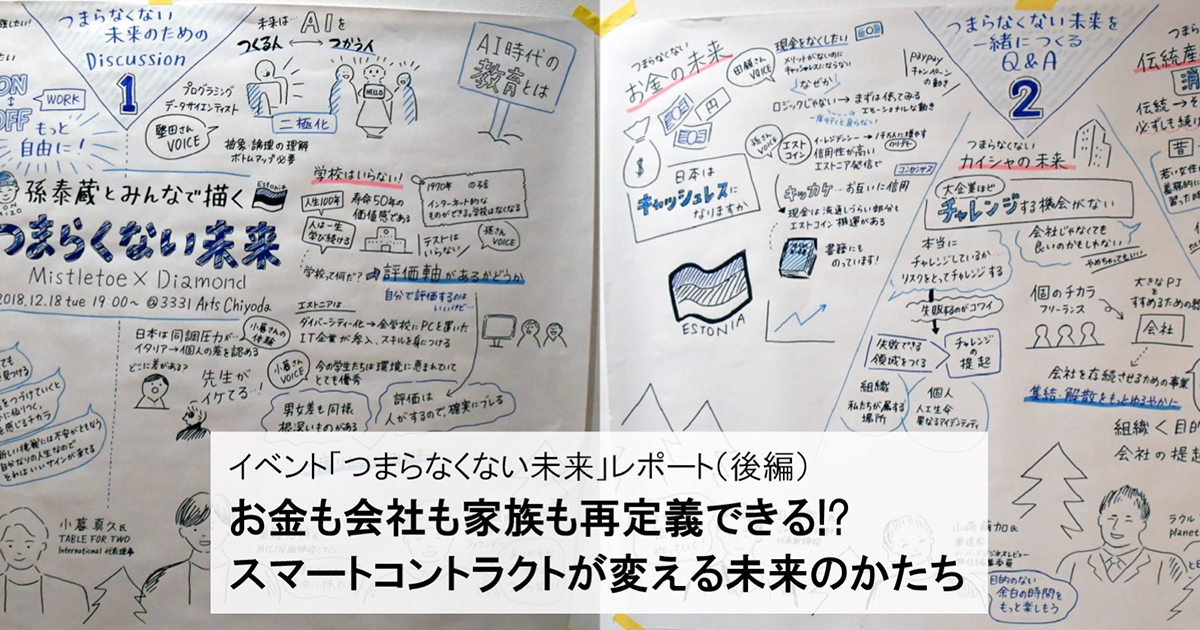 つまらなくない
未来のための
Discussion
1
ON
OFF
WORK
もっと
自由に!
未来は…AIを
つくる人 ⟷ つかう人
プログラミング
データサイエンティスト
HELLO
二極化
堅田さん
VOICE
抽象・論理の理解
ボトムアップ必要
AI時代の
教育とは
孫泰蔵とみんなで描く
Estonia
つまらなくない未来
Mistletoe X Diamond
2018.12.18 tue 19:00〜 @3331 Arts Chiyoda
学校はいらない!
人生100年
寿命50年の
価値感である
人は一生
学び続ける
テストは
いらない
孫さん
VOICE
1970年
インターネット的な
ものができる。学校はなくなる
学校って何だ?
評価軸があるかどうか
自分で評価するのは
いいけど…
エストニアは…
ダイバーシティー化→全学校にPCを置いた
IT企業が参入、スキルを身につける
日本は同調圧力が…
イタリア→個人の差を認める
小暮さんの
体験
どこに差がある?
先生が
イケてる…!
小暮さん
VOICE
今の学生たちは環境に恵まれていて
とても優秀
男女差も同様
根深いものがある
評価は
人がするので、確実にブレる
小暮真久氏
TABLE FOR TWO
International 代表理事
つまらなくない
お金の未来
円
$
現金をなくしたい
メリットがないのに
キャッシュレスにならない
なぜか
ロジックじゃない→まずは使ってみる
エモーショナルな動き
一度行くと戻らない
paypay
キャンペーン
の動き
孫さん
VOICE
エスト
コイン
信用性が高い
エストニア発信で
コンセンサス
キッカケ…お互いに信用
現金は流通しづらい部分も
エストコイン 構造がある
日本は
キャッシュレスに
なりますか
書籍にも
のっています!
ESTONIA
つまらなくない未来を
一緒につくる
Q&A
2
つまらなくない
カイシャの未来
大企業ほど
チャレンジする機会がない
本当に
チャレンジしているか…
リスクをとってチャレンジする
失敗するのがコワイ
失敗できる
領域をつくる
チャレンジ
の
提起
会社じゃなくても
良いのかもしれない
やめちゃってもいい
個のチカラ
フリーランス
大きなPJを
すすめるための
会社
会社を存続させるための事業
集結・解散をもっとゆるやかに
組織
私たちが属する
場所
個人
人工生命
異なるアイデンティティ
組織<目的
会社の提起
伝統産
伝統→
必ずしも続け
昔
ラウル
planet
目的のない
余白の時間を
もっと楽しもう
イベント「つまらなくない未来」レポート(後編)
お金も会社も家族も再定義できる!?
スマートコントラクトが変える未来のかたち